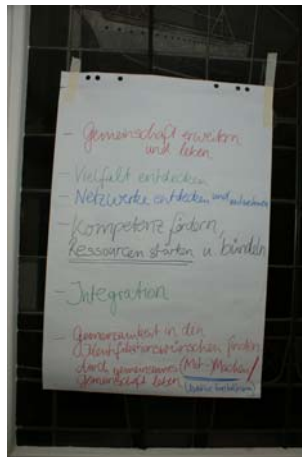 - Gemeinschaft erweitern
und leben
- Vielfalt entdecken
- Netzwerke entdecken und
- Kompetenz fördern,
Ressourcen stärken u. bündeln
- Integration
- Gemeinsamkeit in den
finden
durch gemeinsames (Mit-Machen/
Gemeinschaft leben